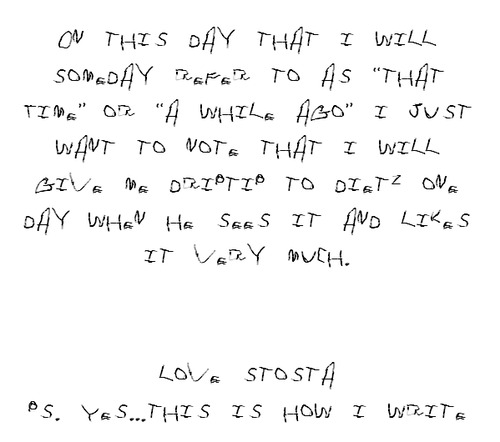 ON THIS DAY THAT I WILL
SOMEDAY REFER TO AS "THAT
TIME" OR "A WHILE AGO" I JUST
WANT TO NOTE THAT I WILL
GIVE ME DRIPTIP TO DIETZ ONE
DAY WHEN HE SEES IT AND LIKES
IT VERY MUCH.
LOVE STOSTA
PS. YES...THIS IS HOW I WRITE